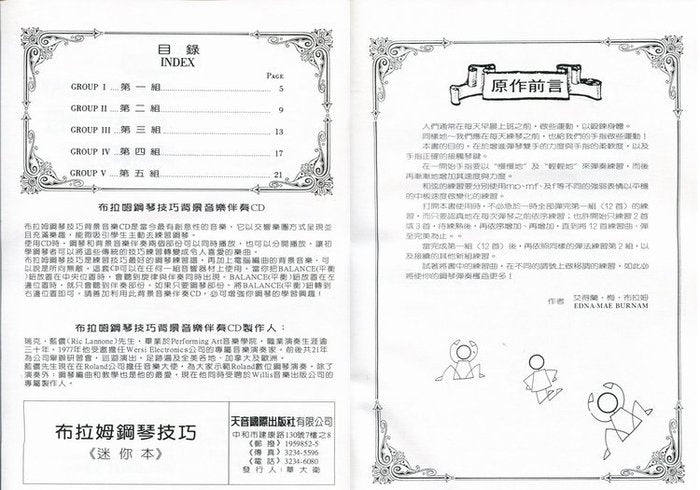 目錄
INDEX
PAGE
GROUP I ....第一組 5
GROUP II ....第二組 9
GROUP III ....第三組 13
GROUP IV ....第四組 17
GROUP V ....第五組 21
布拉姆鋼琴技巧背景音樂伴奏CD
布拉姆鋼琴技巧背景音樂CD是當今最有創意性的音樂，它以交響樂團方式呈現並
且充滿樂趣，能夠吸引學生主動去練習鋼琴。
使用CD時，鋼琴和背景音樂伴奏兩個部份可以同時播放，也可以分開播放，讓初
學鋼琴者可以將這些傳統的技巧練習轉變成令人喜愛的樂曲。
布拉姆鋼琴技巧是練習技巧最好的鋼琴練習譜，再加上電腦編曲的背景音樂，可
以說是所向無敵，這套CD可以在任何一組音響器材上使用，當你把BALANCE(平衡
)鈕放置在中央位置時，會聽到旋律與伴奏同時出現，BALANCE(平衡)鈕放置在左
邊位置時，就只會聽到伴奏部份，如果只要鋼琴部份，將BALANCE(平衡)鈕轉到
右邊位置即可。請善加利用此背景音樂伴奏CD，必可增強你學鋼琴的學習興趣！
布拉姆鋼琴技巧背景音樂伴奏CD製作人：
瑞克‧藍儂(Ric Lannone)先生，畢業於Performing Art音樂學院，職業演奏生涯逾
三十年，1977年他受邀擔任Wersi Electronics公司的專屬音樂演奏家，前後共21年
為公司舉辦研習會，巡迴演出，足跡遍及全美各地、加拿大及歐洲。
藍儂先生現在在Roland公司擔任音樂大使，為大家示範Roland數位鋼琴演奏，除了
演奏外；鋼琴編曲和教學也是他的最愛，現在他同時受聘於Willis音樂出版公司的
專屬製作人。
布拉姆鋼琴技巧
《迷你本》
天音國際出版社有限公司
中和市建康路130號7樓之8
《郵撥》1959852-5
《傳真》3234-5596
《電話》3234-6080
發行人：華大衛
原作前言
人們通常在每天早晨上班之前，做些運動，以鍛鍊身體。
同樣地～我們應在每天練琴之前，也給我們的手指做些運動！
本書的目的，在於增進彈琴雙手的力度與手指的柔軟度，以及
手指正確的接觸琴鍵。
在一開始手指要以〝慢慢地〞及〝輕輕地〞來彈奏練習，而後
再漸漸地增加其速度與力度。
和弦的練習要分別使用mp‧mf‧及f等不同的強弱表情以平穩
的中板速度做變化的練習。
打開本書使用時，不必急於一時全部彈完第一組（12首）的練
習，而只要認真地在每次彈琴之前依序練習；也許開始只練習2首
或3首，待練熟後，再依序增加、再增加，直到將12首練習曲，彈
至完美為止…。
當完成第一組（12首）後，再依照同樣的彈法練習第2組，以
及接續的其他新組練習。
試著將書中的練習曲，在不同的調號上做移調的練習，如此必
將使你的鋼琴彈奏棒曲更多！
作者 艾得蘭‧梅‧布拉姆
EDNA-MAE BURNAM